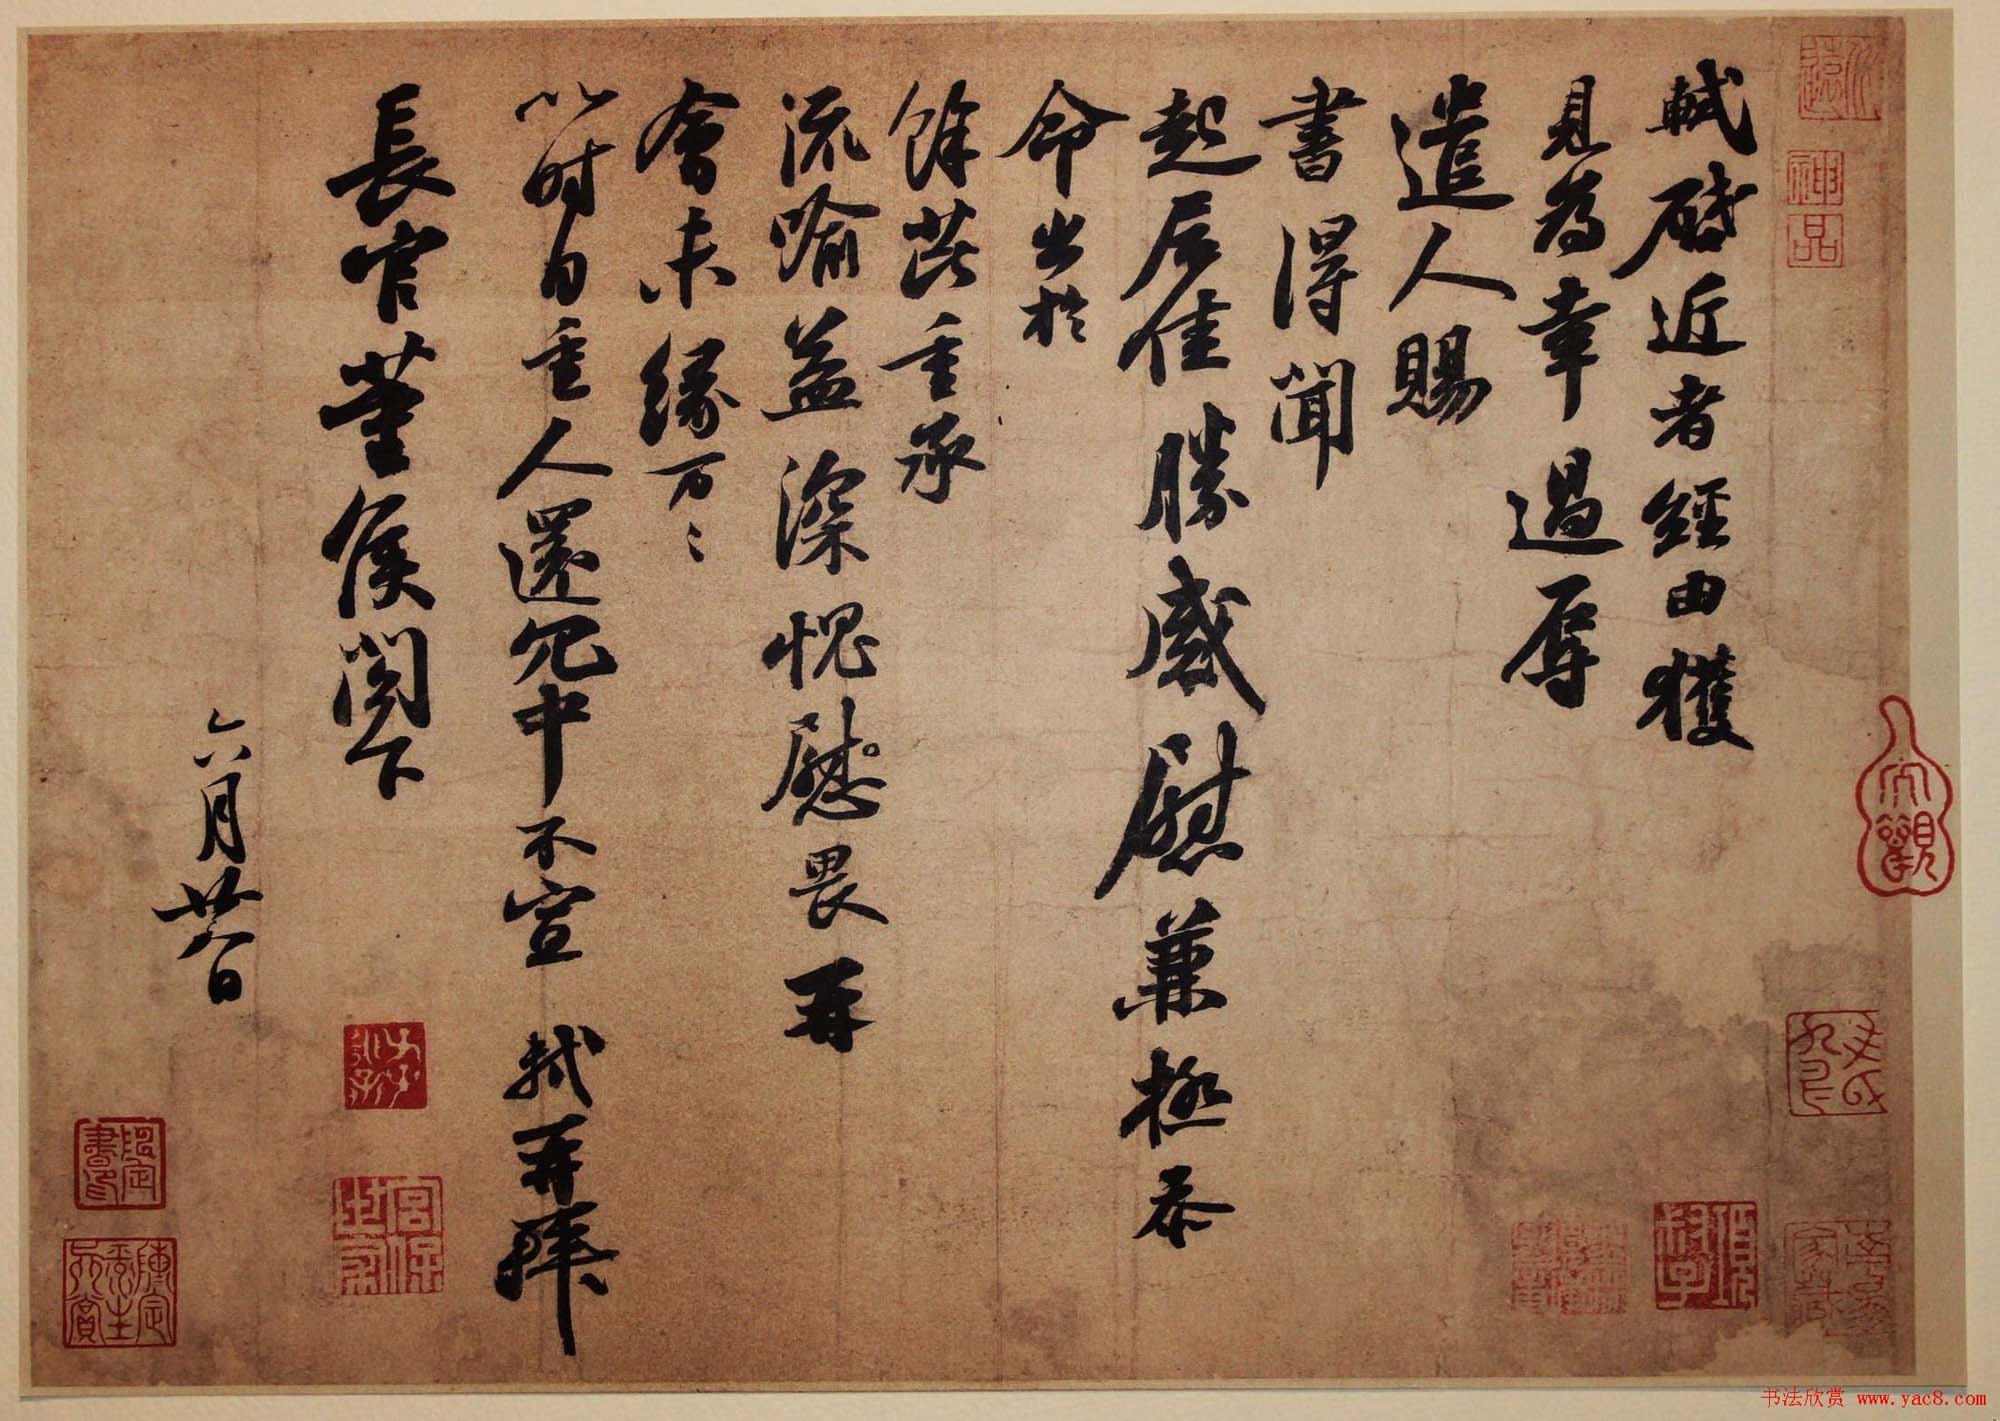 軾啓近者經由獲
見為幸過辱
遣人賜
書得聞
起居佳勝感慰兼極忝
命出於
餘芘重承
流喻益深愧慰畏再
會未緣万〻
以时自重人還冗中不宣 軾再拜
長官董侯閤下
六月廿八日
神品
大觀
書法欣赏 www.yac8.com